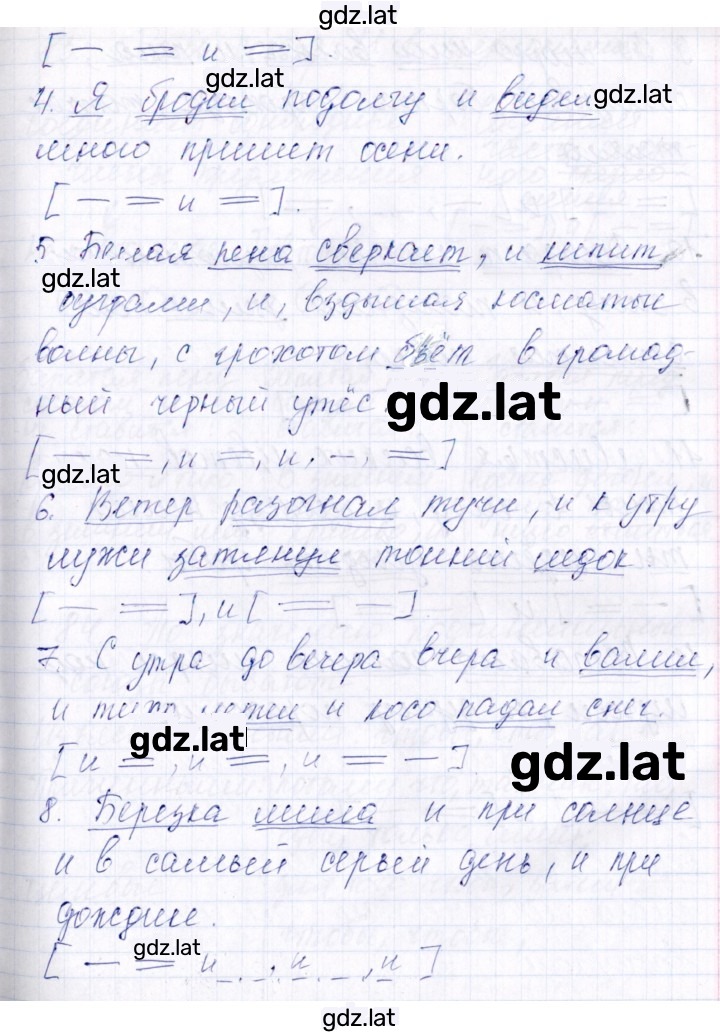 gdz.lat
[ — = и = ].
gdz.lat
4. Я бродил подолгу и видел
gdz.lat
много примет осени.
[ — = и = ].
5. Белая пена сверкает, и кипит
gdz.lat
буграми, и, вздымая косматые
волны, с грохотом бьёт в громад-
ный черный утёс.
gdz.lat
[ — =, и =, и, —, = ]
gdz.lat
6. Ветер разогнал тучи, и к утру
лужи затянул тонкий ледок
[ — = ], и [ = — ].
7. С утра до вечера вчера и валил,
и и косо падал снег.
gdz.lat
[ и =, и =, и = — ]
gdz.lat
8. Березка мила и при солнце
и в самый серый день, и при
дождике.
gdz.lat
[ — = и , и , и ]
gdz.lat